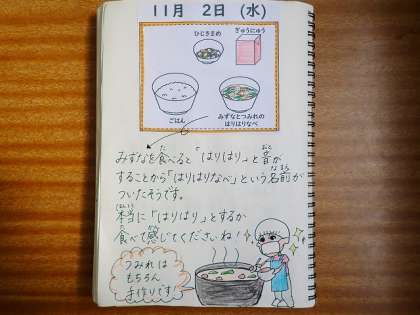 11月 2日 (水)
ひじきまめ
ぎゅうにゅう
ごはん
みずなとつみれの
はりはりなべ
みずなを食べると「はりはり」と音が
することから「はりはりなべ」という名前が
ついたそうです。
本当に「はりはり」とするか
食べて感じてくださいね!
つみれは
もちろん
手作りです!